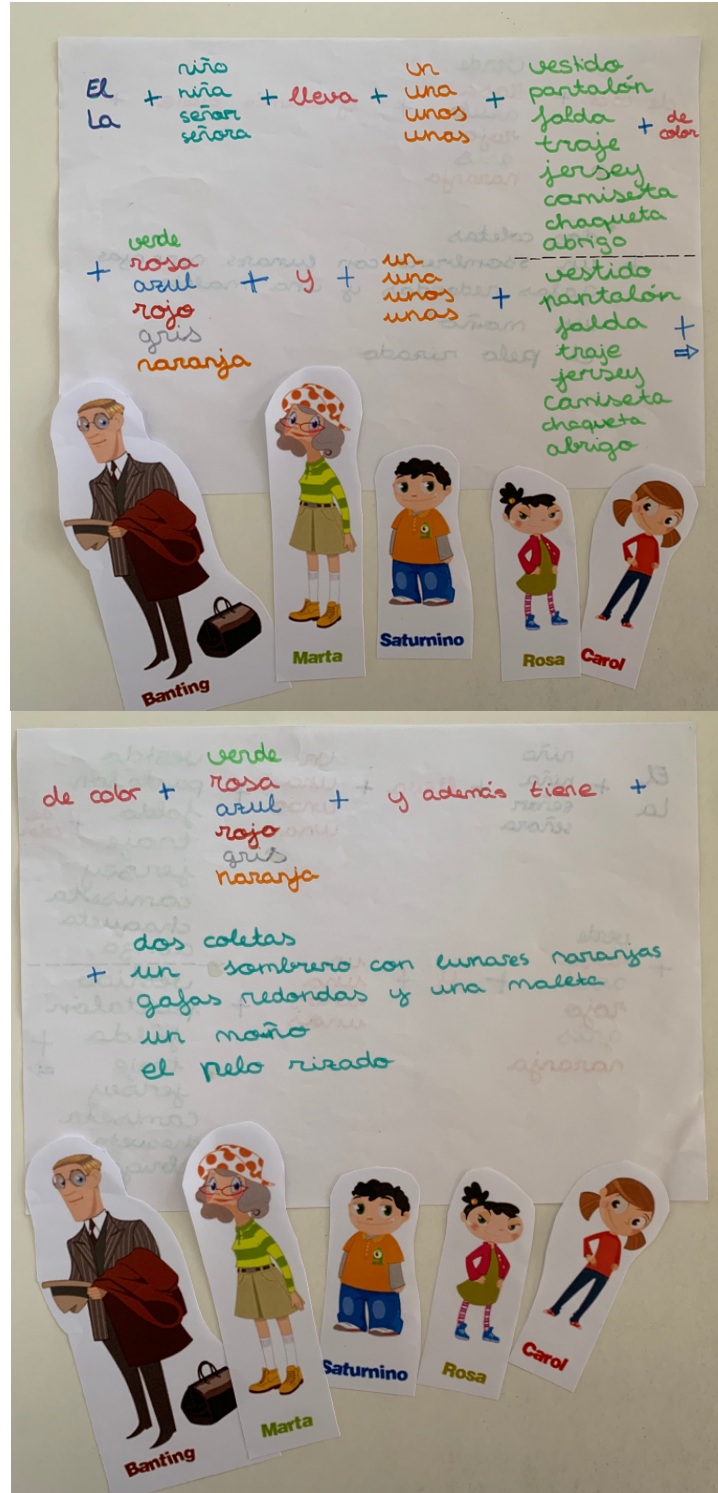 El
La
+
niño
niña
señor
señora
+ lleva +
un
una
unos
unas
+
vestido
pantalón
falda
traje
jersey
camiseta
chaqueta
abrigo
+ de
color
+
verde
rosa
azul
rojo
gris
naranja
+ y +
un
una
unos
unas
+
vestido
pantalón
falda
traje
jersey
camiseta
chaqueta
abrigo
+
⇨
Banting
Marta
Saturnino
Rosa
Carol
de color +
verde
rosa
azul
rojo
gris
naranja
+ y además tiene +
dos coletas
+ un sombrero con lunares naranjas
gafas redondas y una maleta
un moño
el pelo rizado
Banting
Marta
Saturnino
Rosa
Carol